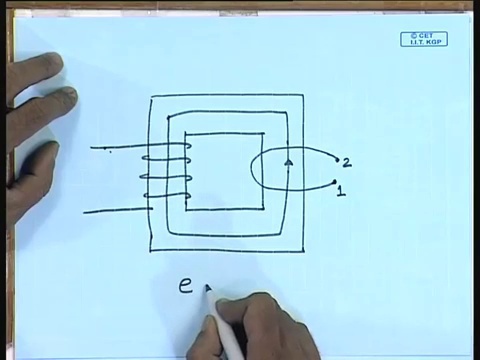 © CET
I.I.T. KGP
2
1
e